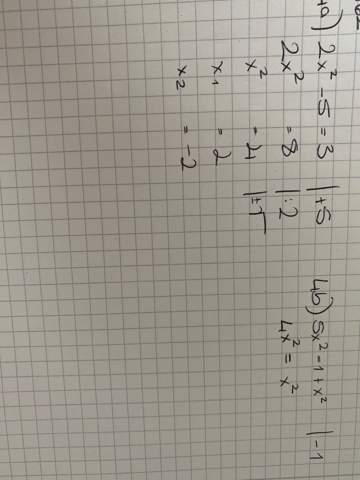 4a) 2x² - 5 = 3 | +5
2x² = 8 | :2
x² = 4 | ±√
x₁ = 2
x₂ = -2
4b) 5x² - 1 + x² | -1
4x² = x²